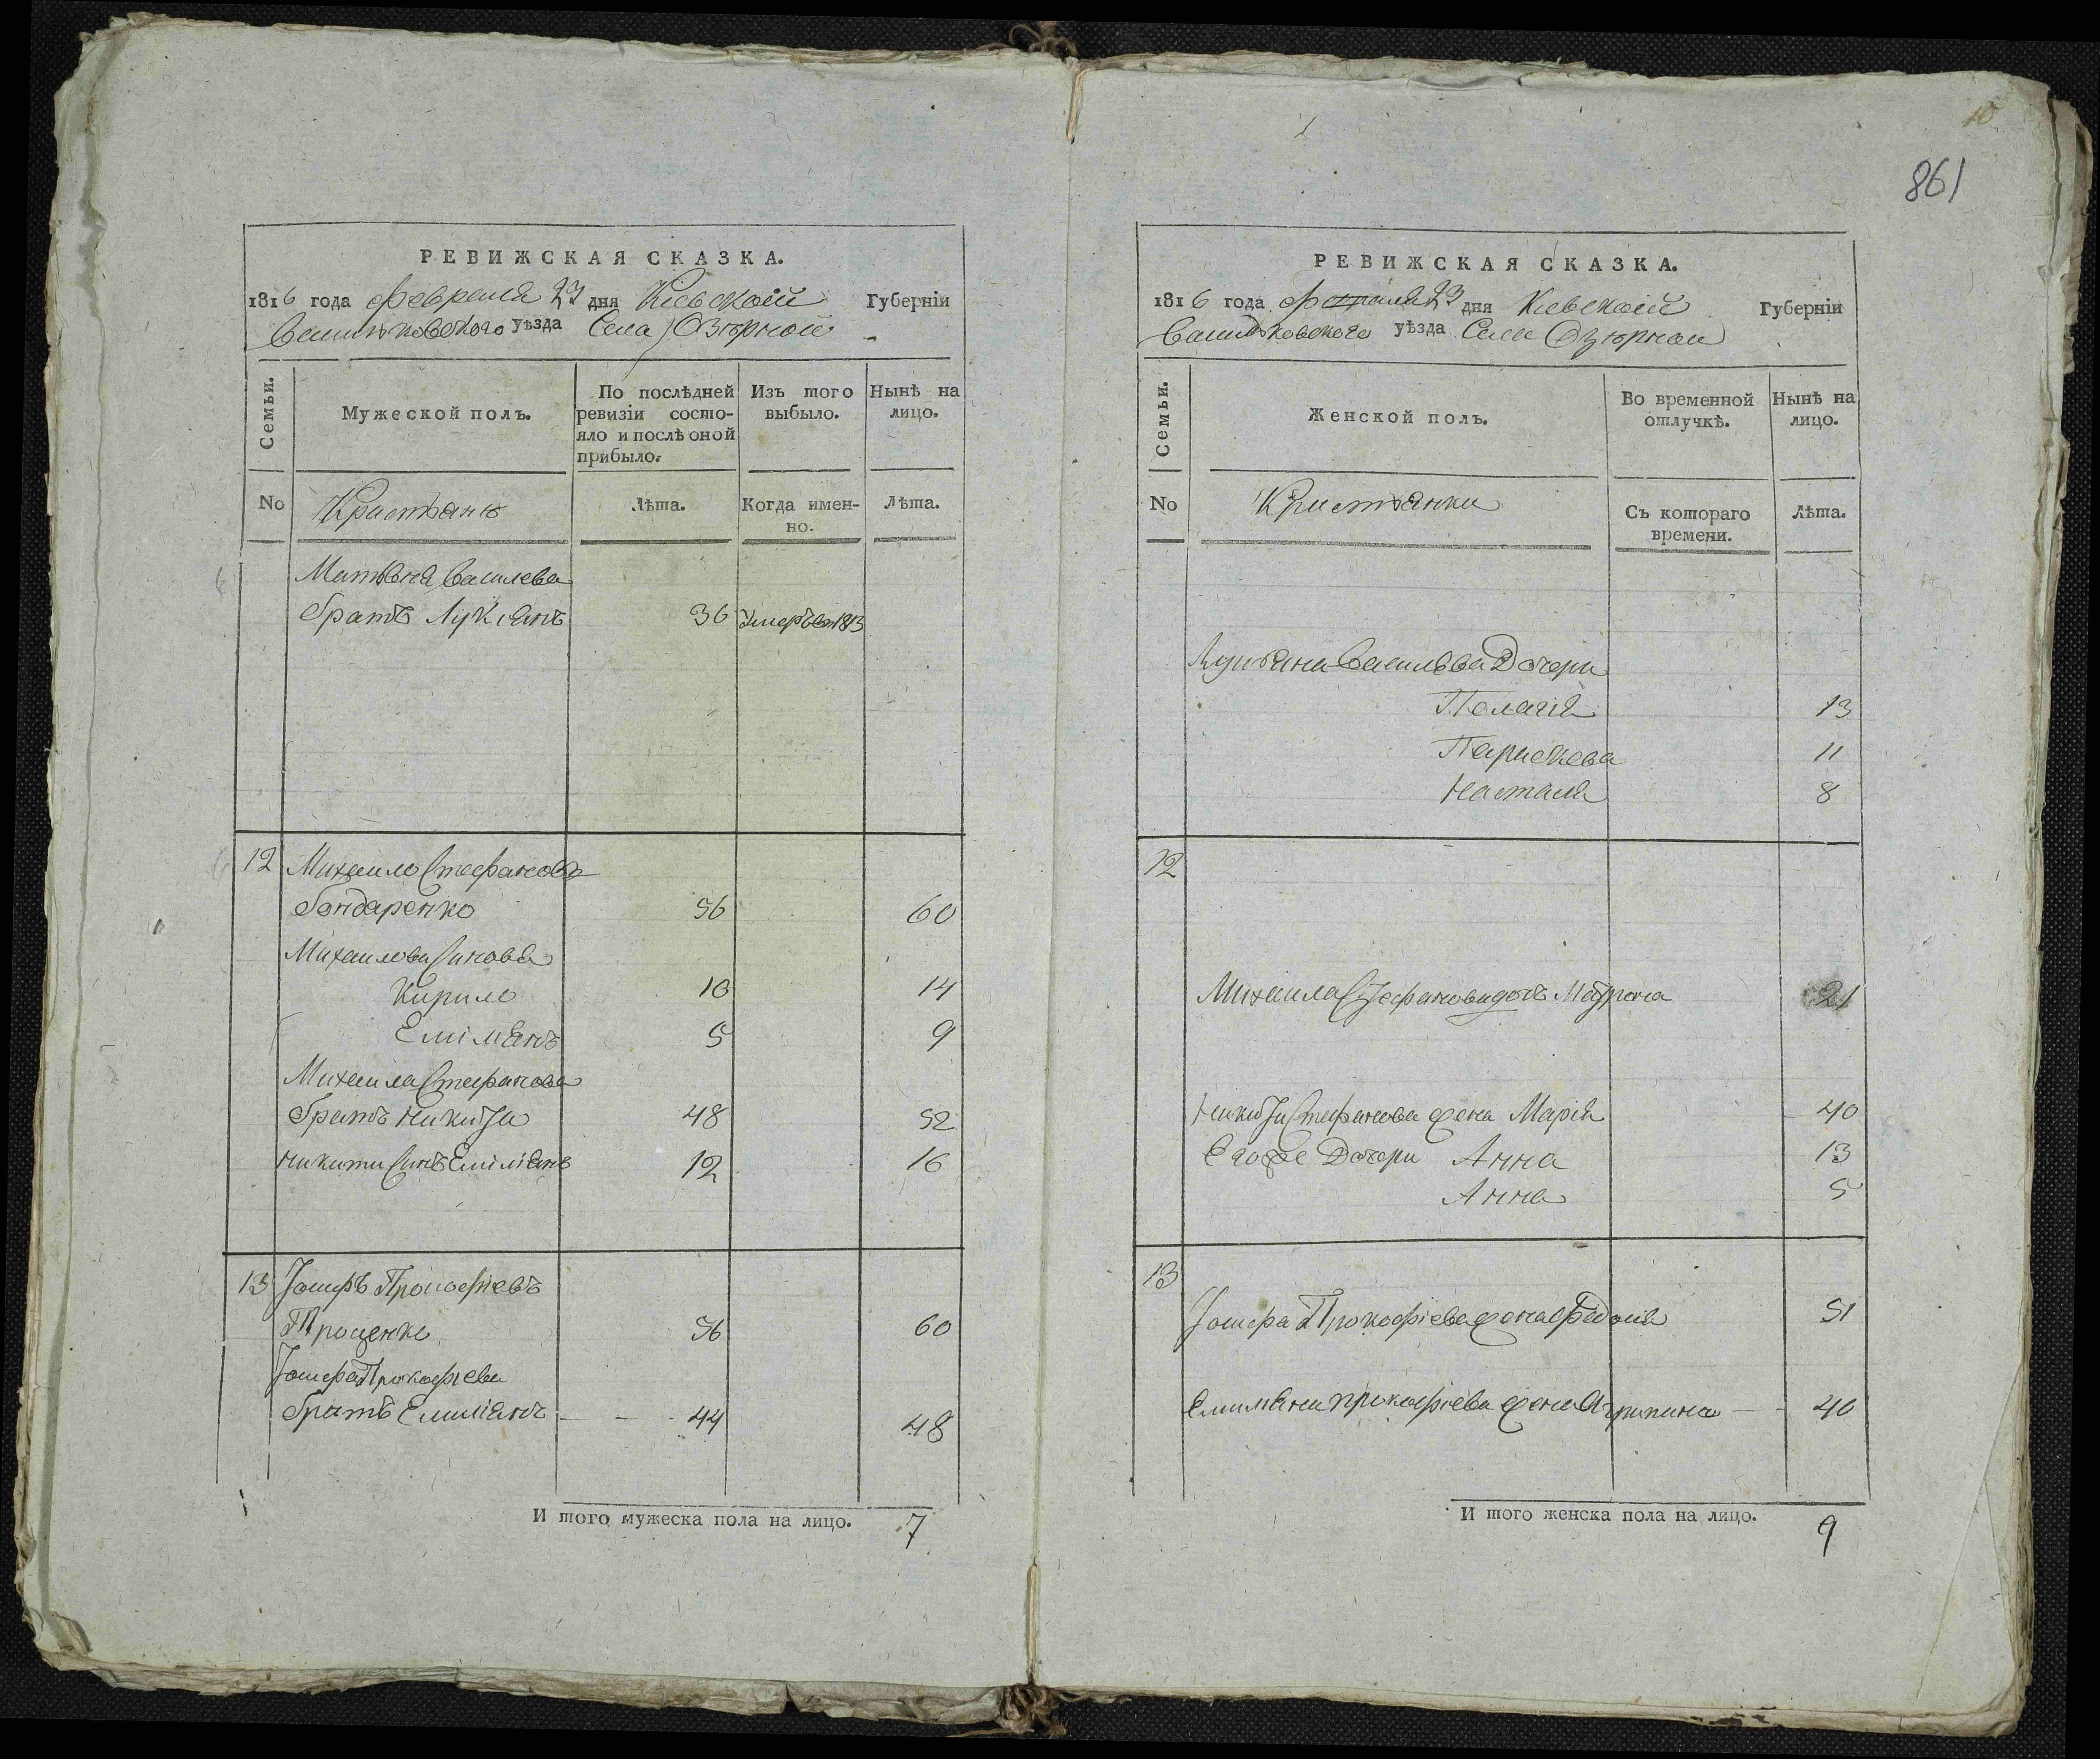 РЕВИЖСКАЯ СКАЗКА.
1816 года февраля 23 дня Киевской Губерніи
Васильковского уѣзда Села Озѣрной
Семьи.
Мужеской полъ.
По послѣдней ревизіи состо-
яло и послѣ оной
прибыло.
Изъ того выбыло.
Нынѣ на лицо.
No
Кристьянѣ
Лѣта.
Когда имен-
но.
Лѣта.
Матвѣя Василева
братъ Лукіянъ 36 Умеръ въ 1813
12 Михаило Стефановъ
Бондаренко 56 60
Михаилови Синовя
Кирило 10 14
Емілянъ 5 9
Михаила Стефанова
братъ Никита 48 52
Никити Синъ Емілянъ 12 16
13 Іосифъ Прокофіевъ
Проценко 56 60
Іосифа Прокофіева
братъ Емиліянъ 44 48
И того мужеска пола на лицо. 7
10
861
РЕВИЖСКАЯ СКАЗКА.
1816 года февраля 23 дня Киевской Губерніи
Васильковского уѣзда Села Озѣрной
Семьи.
Женской полъ.
Во временной
отлучкѣ.
Нынѣ на
лицо.
No
Кристьянки
Съ котораго
времени.
Лѣта.
Лукьяна Василева Дочери
Пелагія 13
Парискева 11
Настася 8
12
Михаила Стефанова дочь Матрона 21
Никити Стефанова жена Марія 40
Егоже Дочери Анна 13
Анна 5
13
Іосифа Прокофіева жена Федосія 51
Емиляна Прокофіева жена Агрипина 40
И того женска пола на лицо. 9